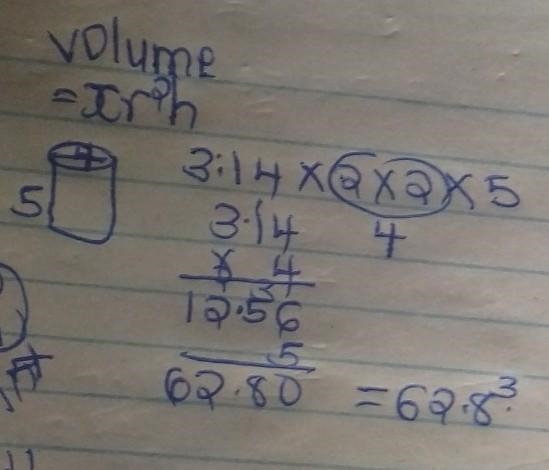 volume
= πr²h
5
4
3.14 × 2 × 2 × 5
4
3.14
× 4
12.56
5
62.80 = 62.8³.